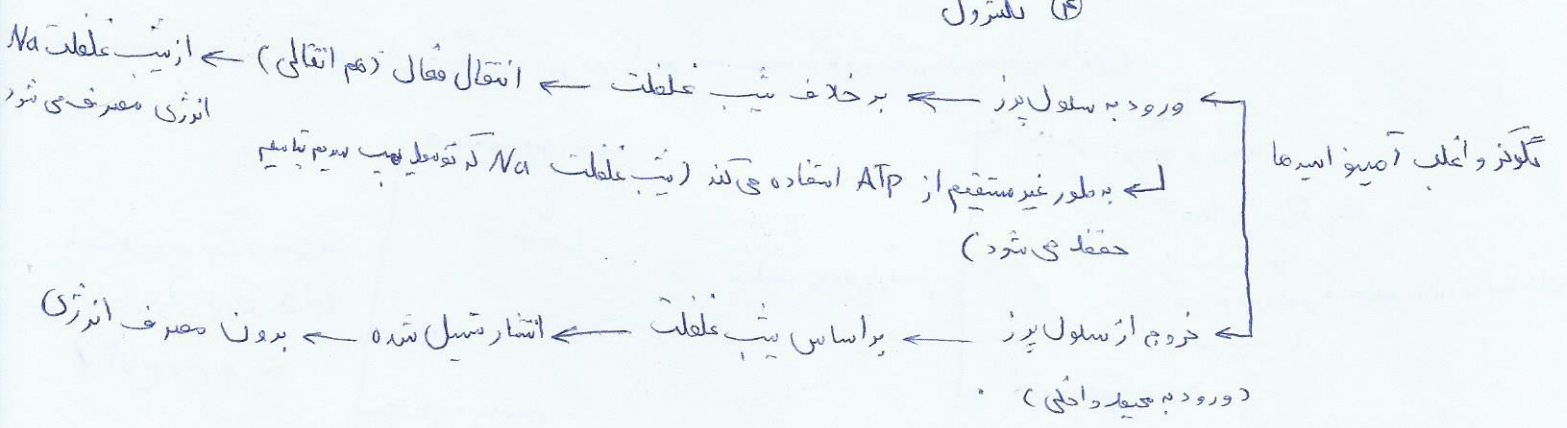 ④ کلسترول
ورود به سلول پرز ← برخلاف شیب غلظت ← انتقال فعال (هم انتقالی) ← از شیب غلظت Na
انرژی مصرف می شود
گلوکز و اغلب آمینو اسیدها
← به طور غیر مستقیم از ATP استفاده می کند (شیب غلظت Na که توسط پمپ سدیم پتاسیم
حفظ می شود)
← خروج از سلول پرز ← براساس شیب غلظت ← انتشار تسهیل شده ← بدون مصرف انرژی
(ورود به محیط داخلی)